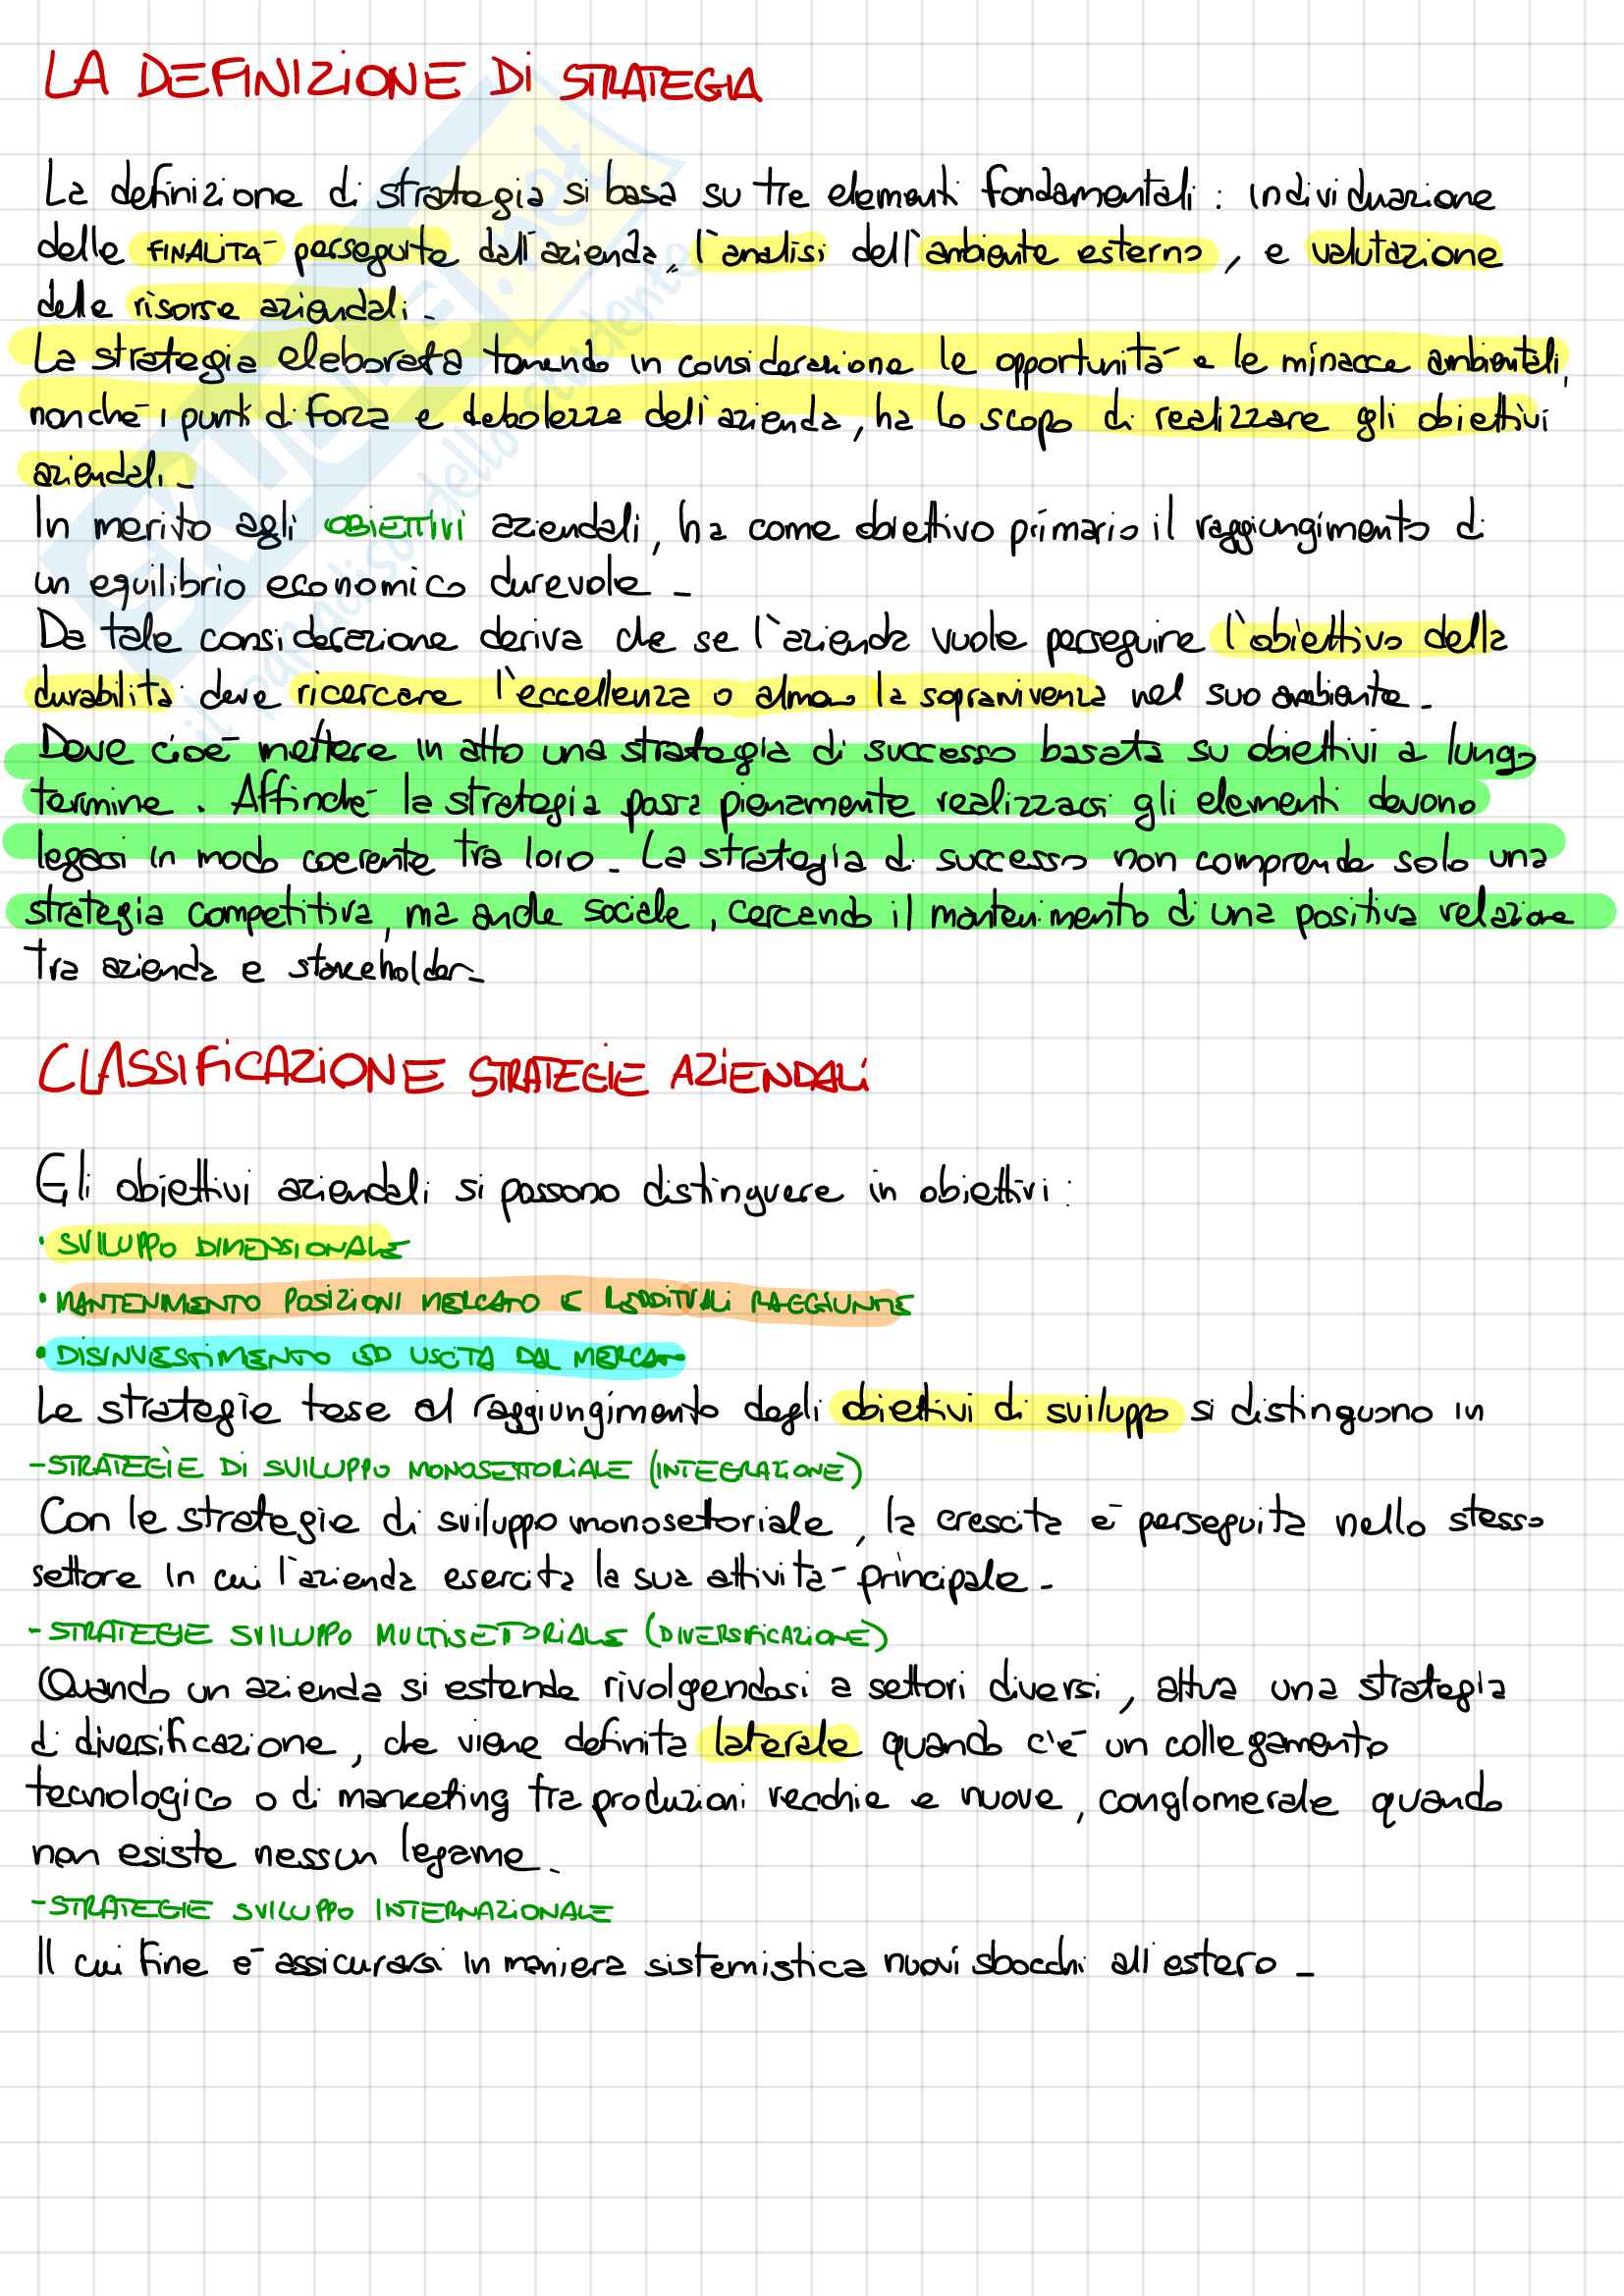 LA DEFINIZIONE DI STRATEGIA
La definizione di strategia si basa su tre elementi fondamentali : individuazione
delle FINALITA' perseguite dall'azienda, l'analisi dell'ambiente esterno, e valutazione
delle risorse aziendali.
La strategia eleborata tenendo in considerazione le opportunità e le minacce ambientali,
nonché i punti di forza e debolezza dell'azienda, ha lo scopo di realizzare gli obiettivi
aziendali.
In merito agli OBIETTIVI aziendali, ha come obiettivo primario il raggiungimento di
un equilibrio economico durevole.
Da tale considerazione deriva che se l'azienda vuole perseguire l'obiettivo della
durabilità deve ricercare l'eccellenza o almeno la sopravvivenza nel suo ambiente.
Deve cioè mettere in atto una strategia di successo basata su obiettivi a lungo
termine. Affinché la strategia possa pienamente realizzarsi gli elementi devono
legarsi in modo coerente tra loro. La strategia di successo non comprende solo una
strategia competitiva, ma anche sociale, cercando il mantenimento di una positiva relazione
tra azienda e stakeholder.
CLASSIFICAZIONE STRATEGIE AZIENDALI
Gli obiettivi aziendali si possono distinguere in obiettivi:
• SVILUPPO DIMENSIONALE
• MANTENIMENTO POSIZIONI MERCATO E REDDITUALI RAGGIUNTE
• DISINVESTIMENTO ED USCITA DAL MERCATO
Le strategie tese al raggiungimento degli obiettivi di sviluppo si distinguono in
- STRATEGIE DI SVILUPPO MONOSETTORIALE (INTEGRAZIONE)
Con le strategie di sviluppo monosettoriale, la crescita è perseguita nello stesso
settore in cui l'azienda esercita la sua attività principale.
- STRATEGIE SVILUPPO MULTISETTORIALE (DIVERSIFICAZIONE)
Quando un azienda si estende rivolgendosi a settori diversi, attua una strategia
di diversificazione, che viene definita laterale quando c'è un collegamento
tecnologico o di marketing tra produzioni vecchie e nuove, conglomerale quando
non esiste nessun legame.
- STRATEGIE SVILUPPO INTERNAZIONALE
Il cui fine è assicurarsi in maniera sistemistica nuovi sbocchi all'estero.